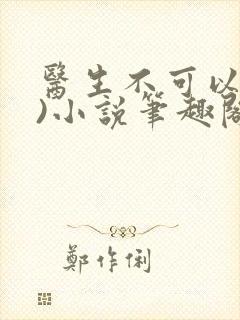 醫生不可以
)小說筆趣閣
鄭作俐